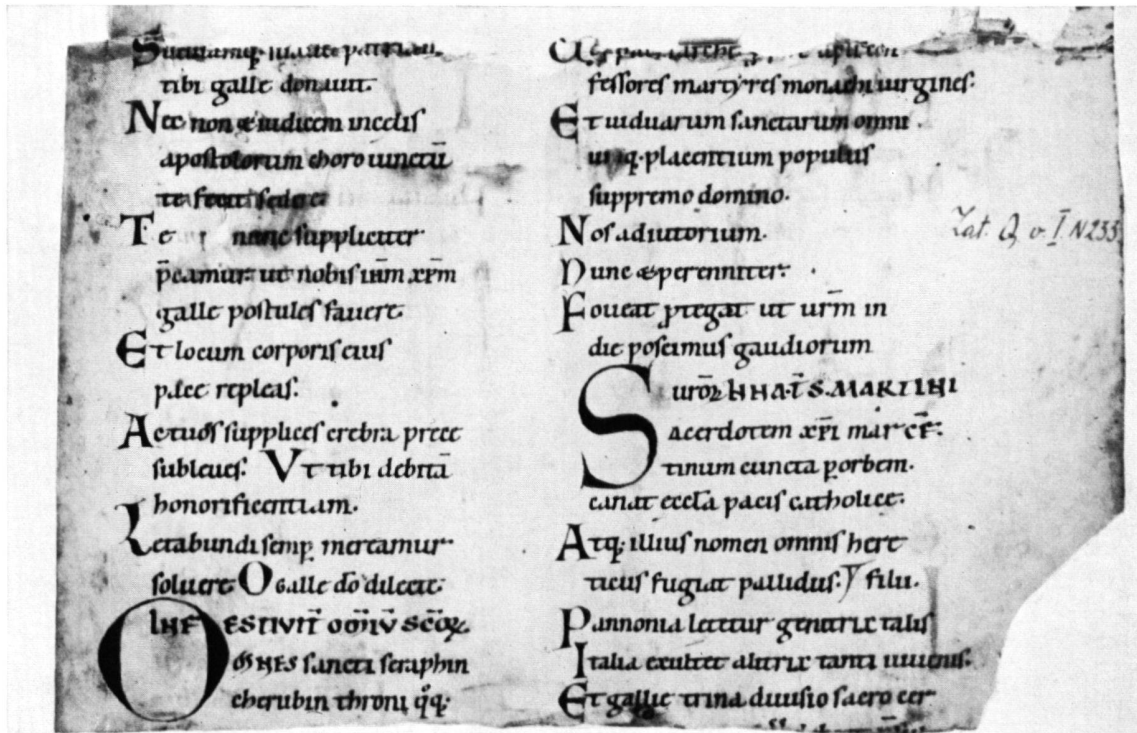 tibi galle donauit.
Nec non & iudicem in celis
apostolorum choro iunctū
te fecit sedere
Te nunc suppliciter
p̄camur. ut nobis ihm̄ xp̄m
galle postules fauere.
Et locum corporis eius
pace repleas.
Actuos supplices crebra prece
subleues. Vt tibi debitā
honorificentiam.
Letabundi semp mereamur
soluere. O Galle dō dilecte.
OMNES sancti seraphin
cherubin throni q̊q;
fessores martyres monachi uirgines.
Et uiduarum sanctarum omni
umq; placentium populus
suppremo domino.
Nos adiutorium.
Nunc & perenniter.
Foueat ptegat ut urm̄ in
die poscimus gaudiorum
S. MARTINI
Sacerdotem xpi mar
tinum cuncta p orbem.
canat eccl̄a pacis catholice.
Atq; illius nomen omnis here
ticus fugiat pallidus.
Pannonia letetur genitrix talis
Italia exultet alitrix tanti iuuenis.
Et gallie trina diuisio sacro cer
Lat. Q v. I. N 233